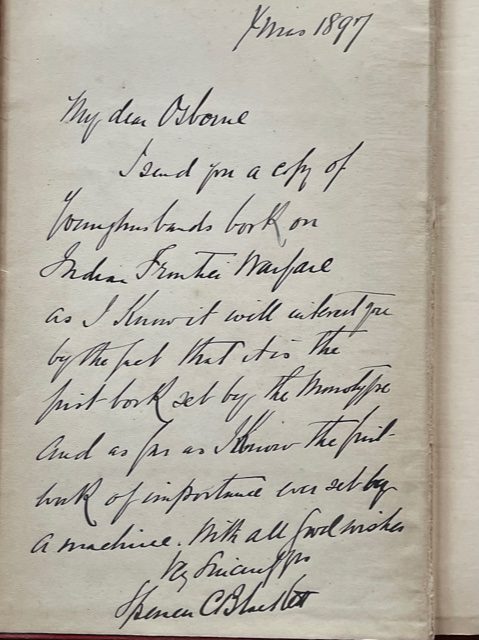 Xmas 1897
My dear Osborne
I send you a copy of
Younghusbands book on
Indian Frontier Warfare
as I know it will interest you
by the fact that it is the
first book set by the Monotype
and as far as I know the first
book of importance ever set by
a machine. With all good wishes
Vy Sincerely yrs
Spencer C Blackett